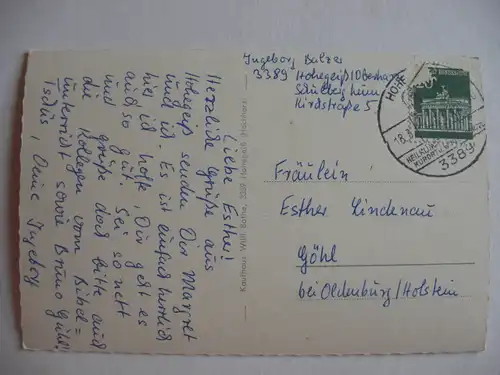 Ingeborg Balzer
3389 Hohegeiß/Oberharz
Schullerg heim
Kirchstraße 5
DEUTSCHE BUNDESPOST
HOHE
HEILKLIMA
KURORT
3389
Fräulein
Esther Lindenau
Göhl
bei Oldenburg/Holstein
Kaufhaus Willi Bothe, 3389 Hohegeiß (Hochharz)
Liebe Esther!
Herzliche Grüße aus
Hohegeiß senden Dir Margret
und ich. Es ist einfach herrlich
hier, ich hoffe, Dir geht es
auch so gut. Sei so nett
und grüße doch bitte auch
die Kollegen vom Bibel=
unterricht sowie Bruno Gühl!
Tschüs, Deine Ingeborg